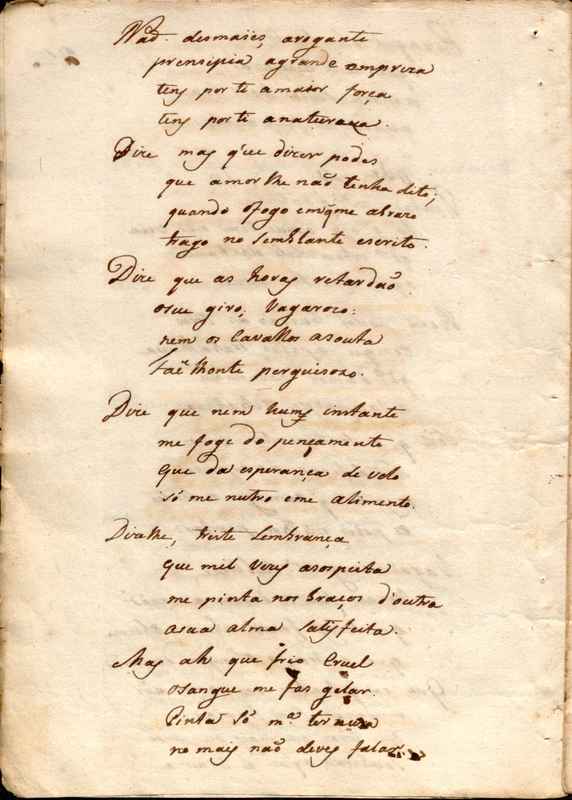 Naõ desmaies, arogante
prensipia agrande empriza
tens por ti amaior força
tens por ti anaturaza.
Dize mas que dizer podes
que amor lhe não tenha dito,
quando ofogo emq̃me abrazo
trago no semblante escrito.
Dize que as horas retardão
oseu giro, vagarozo:
nem os Cavallos asouta
Faẽthonte perguisozo.
Dize que nem hum instante
me foge do pençamento
que da esperança de velo
só me nutro eme alimento.
Dizelhe, triste lembrança
que mil vezes asospeita
me pinta nos braços d'outra
asua alma satisfeita.
Mas ah que frio Cruel
osangue me fas gelar.
Pinta só mª. ternura
no mais não deves falar.